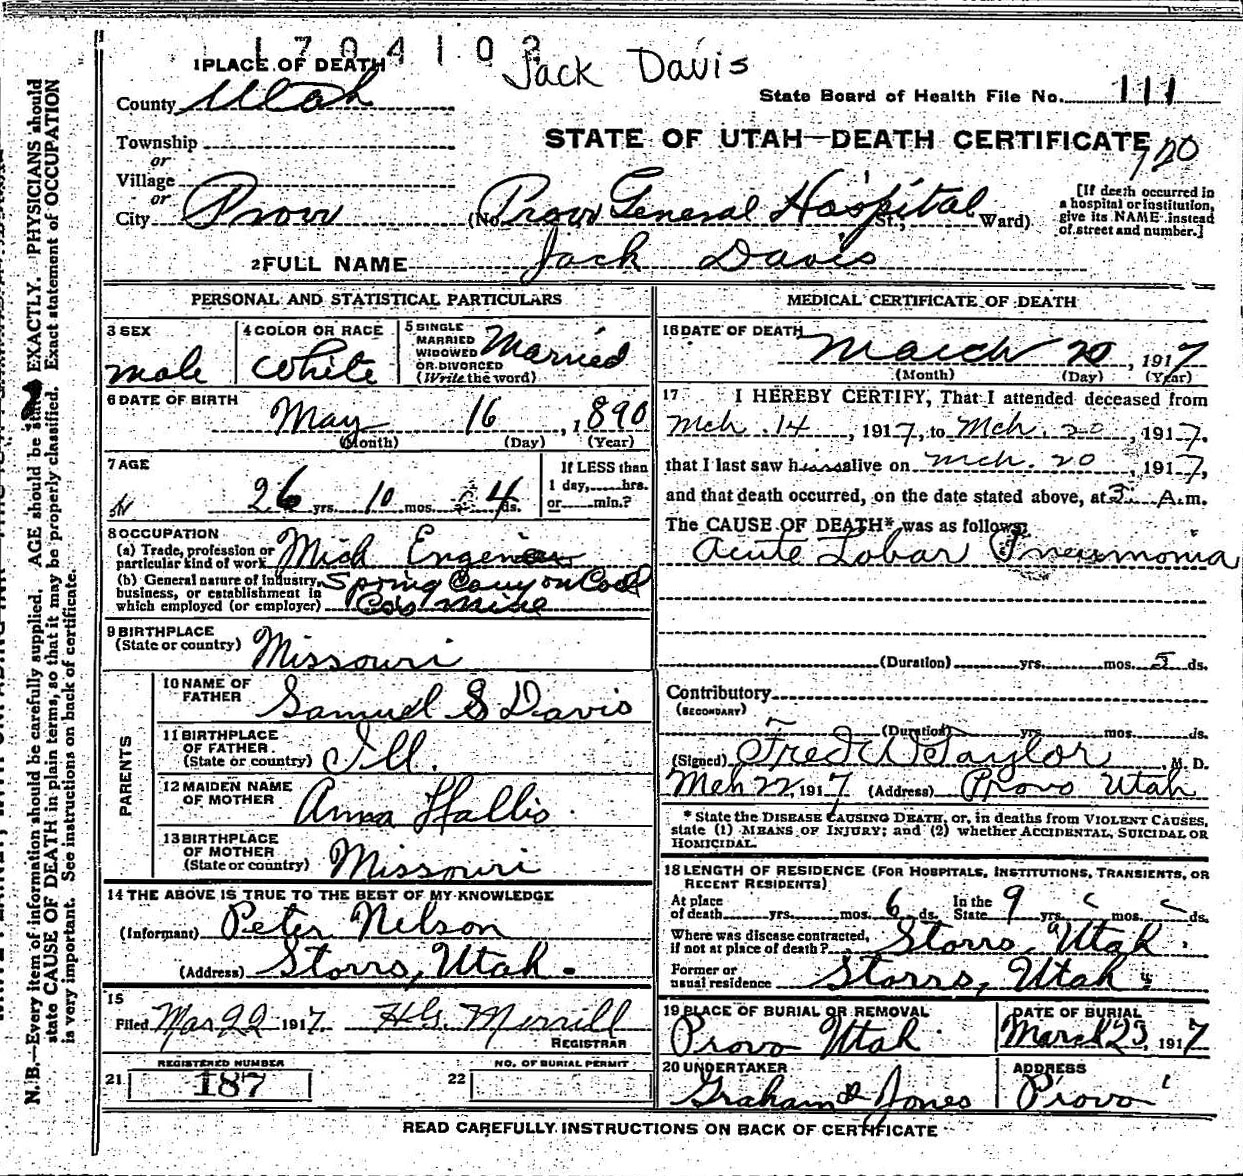 1704102
Jack Davis
1 PLACE OF DEATH
County Utah
State Board of Health File No. 111
Township
or
STATE OF UTAH—DEATH CERTIFICATE
120
Village
or
City Provo (No. Provo General Hospital St., Ward)
[If death occurred in a hospital or institution, give its NAME instead of street and number.]
2 FULL NAME Jack Davis
PERSONAL AND STATISTICAL PARTICULARS
3 SEX
male
4 COLOR OR RACE
White
5 SINGLE MARRIED WIDOWED OR DIVORCED (Write the word)
Married
6 DATE OF BIRTH
May 16, 1890
(Month) (Day) (Year)
7 AGE
26 yrs. 10 mos. 4 ds.
If LESS than 1 day, hrs. or min.?
8 OCCUPATION
(a) Trade, profession or particular kind of work
(b) General nature of industry, business, or establishment in which employed (or employer) Spring Canyon Coal Co's Mine
9 BIRTHPLACE (State or country) Missouri
PARENTS
10 NAME OF FATHER Samuel S Davis
11 BIRTHPLACE OF FATHER (State or country) Ill.
12 MAIDEN NAME OF MOTHER Anna Hallis
13 BIRTHPLACE OF MOTHER (State or country) Missouri
14 THE ABOVE IS TRUE TO THE BEST OF MY KNOWLEDGE
(Informant) Peter Nelson
(Address) Storrs, Utah.
15
Filed Mar 22 1917 H.G. Merrill
REGISTRAR
REGISTERED NUMBER
21 187
NO. OF BURIAL PERMIT
22
MEDICAL CERTIFICATE OF DEATH
16 DATE OF DEATH
March 20, 1917
(Month) (Day) (Year)
17 I HEREBY CERTIFY, That I attended deceased from
Mch. 14, 1917, to Mch. 20, 1917,
that I last saw h alive on Mch. 20, 1917,
and that death occurred, on the date stated above, at 3 A.m.
The CAUSE OF DEATH* was as follows:
Acute Lobar Pneumonia
(Duration) yrs. mos. 5 ds.
Contributory
(SECONDARY)
(Duration) yrs. mos. ds.
(Signed) Fred W Taylor, M. D.
Mch 22, 1917 (Address) Provo Utah
* State the DISEASE CAUSING DEATH, or, in deaths from VIOLENT CAUSES,
state (1) MEANS OF INJURY; and (2) whether ACCIDENTAL, SUICIDAL OR
HOMICIDAL.
18 LENGTH OF RESIDENCE (FOR HOSPITALS, INSTITUTIONS, TRANSIENTS, OR
RECENT RESIDENTS)
At place of death yrs. mos. 6 ds. In the State 9 yrs. mos. ds.
Where was disease contracted, if not at place of death? Storrs, Utah.
Former or usual residence Storrs, Utah
19 PLACE OF BURIAL OR REMOVAL
Provo Utah
DATE OF BURIAL
March 23, 1917
20 UNDERTAKER
Graham & Jones
ADDRESS
Provo
READ CAREFULLY INSTRUCTIONS ON BACK OF CERTIFICATE
N. B.—Every item of information should be carefully supplied. AGE should be stated EXACTLY. PHYSICIANS should
state CAUSE OF DEATH in plain terms, so that it may be properly classified. Exact statement of OCCUPATION
is very important. See instructions on back of certificate.